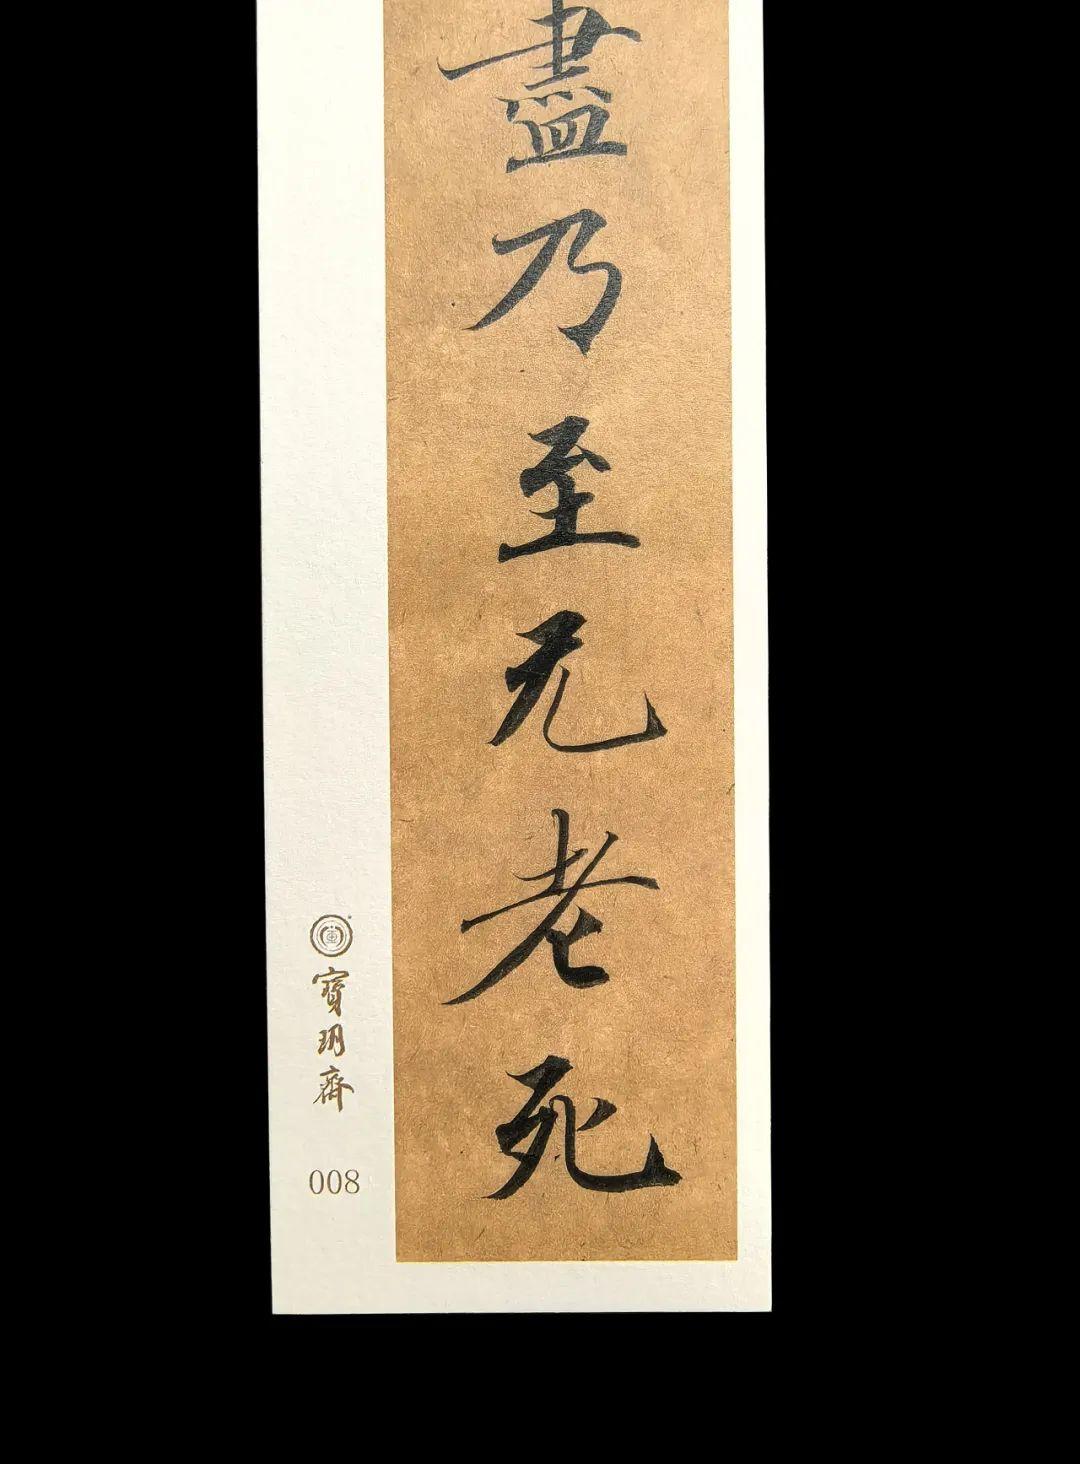 盡乃至无老死
寶玥齋
008